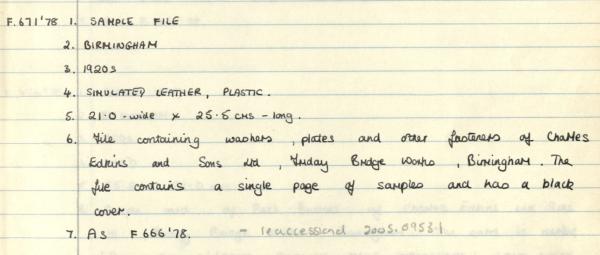 F.671'78 1. SAMPLE FILE
2. BIRMINGHAM
3. 1920s
4. SIMULATED LEATHER, PLASTIC.
5. 21.0 - wide x 25.5 cms - long.
6. File containing washers, plates and other fasteners of Charles
Edkins and Sons Ltd, Friday Bridge Works, Birmingham. The
file contains a single page of samples and has a black
cover.
7. As F666'78. - reaccessiond 2005.0953.1